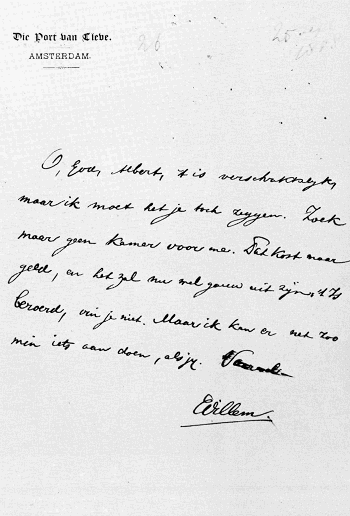 Die Port van Cleve.
AMSTERDAM.
26
O, God, Albert, 't is verschrikkelijk,
maar ik moet het je toch zeggen. Zoek
maar geen kamer voor me. Dat kost maar
geld, en het zal nu wel gauw uit zijn, 't Is
beroerd, vin je niet. Maar ik kan er net zoo
min iets aan doen, als jij.
Willem.